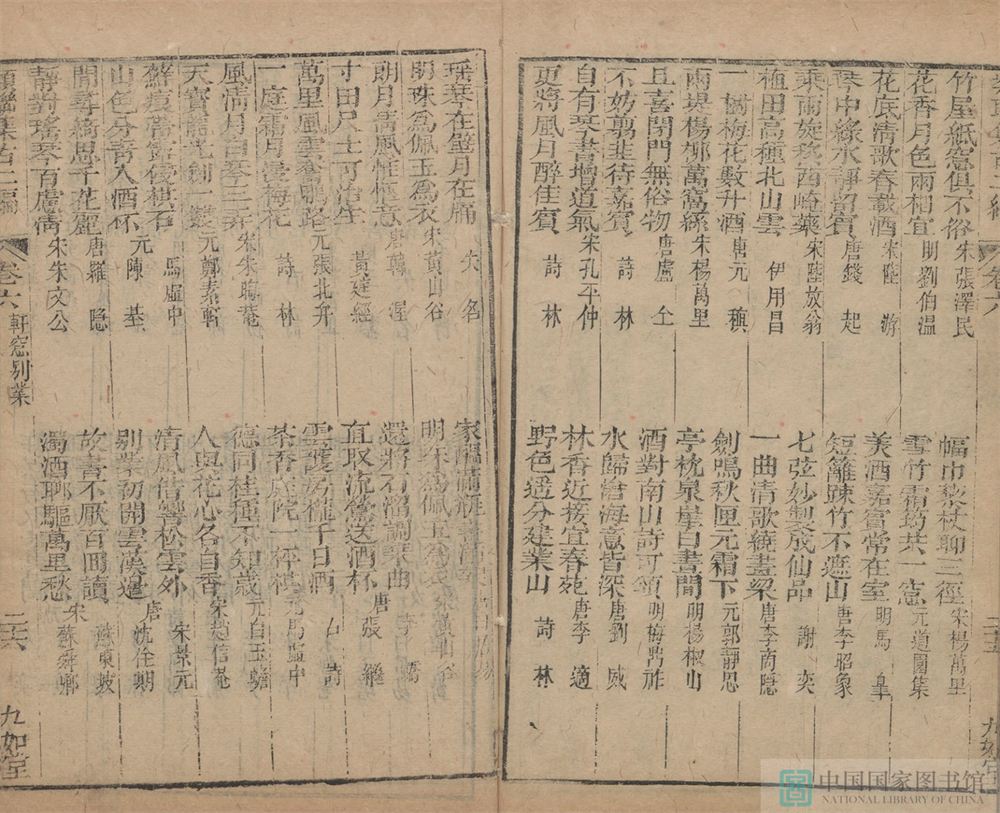 竹屋紙窓俱不俗 宋張澤民 幅巾藜杖聊三徑 宋楊萬里
花香月色兩相宜 明劉伯温 雪竹霜筠共一窓 元道園集
花底清歌春載酒 宋陸游 美酒嘉賓常在室 明馬皐
琴中綠水靜留賓 唐錢起 短籬踈竹不遮山 唐李昭象
乘雨旋移西崦藥 宋陸放翁 七弦妙製成仙品 謝奕
植田高種北山雲 伊用昌 一曲清歌繞畫梁 唐李商隱
一樹梅花數升酒 唐元稹 劍鳴秋匣元霜下 元郭靜思
兩堤楊栁萬窩絲 宋楊萬里 亭枕泉聲白晝間 明楊椒山
且喜閉門無俗物 唐盧仝 酒對南山詩可頌 明梅禹祚
不妨剪韭待嘉賓 詩林 水歸滄海意皆深 唐劉威
自有琴書增道氣 宋孔平仲 林香近接宜春苑 唐李適
更將風月醉佳賓 詩林 野色遥分建業山 詩林
二十五
九如堂
瑶琴在 月在 失名 家
明珠為佩玉為衣 宋黃山谷 明珠為佩玉
朗月清風惟愜意 唐韓偓 還將石溜調琴曲
寸田尺土可治生 黃庭經 直取流鶯送酒杯 唐張繼
萬里風雲 路 元張北丹 雲護 千日酒 詩
一庭霜月浸梅花 詩林 茶香庭院一枰棋 元馬虛中
風清月白琴三弄 宋朱晦菴 德同桂種不知歲 元白玉蟾
天寶龍光劍一 元鄭素軒 人與花心各自香 宋趙信菴
蘚痕帶露侵棋石 馬虛中 清風借響松雲外 宋景元
山色分青入酒杯 元陳基 別業初開雲漢邉 唐沈佺期
閒尋綺思千花麗 唐羅隐 故書不厭百囬讀 蘇東坡
靜對瑤琴百慮清 宋朱文公 濁酒聊驅萬里愁 宋蘇舜卿
卷六 軒窓别業
二十六
九如堂
中国国家图书馆
NATIONAL LIBRARY OF CHINA